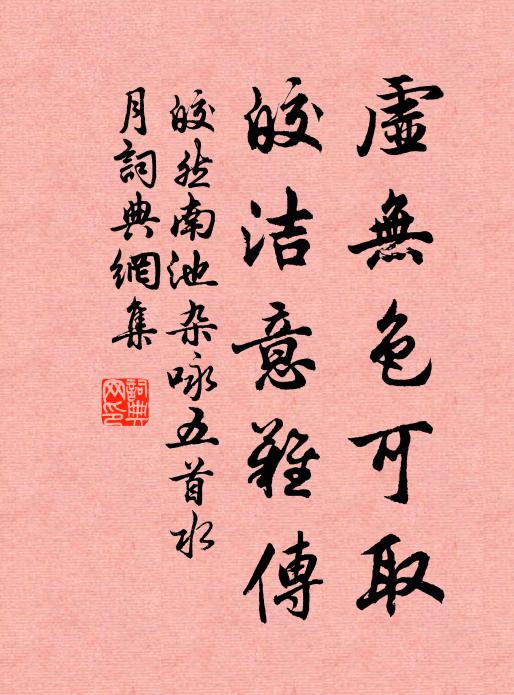 虛無色可取
皎洁意難傳
皎然南池杂咏五首水
月詞典網集
詞典網印